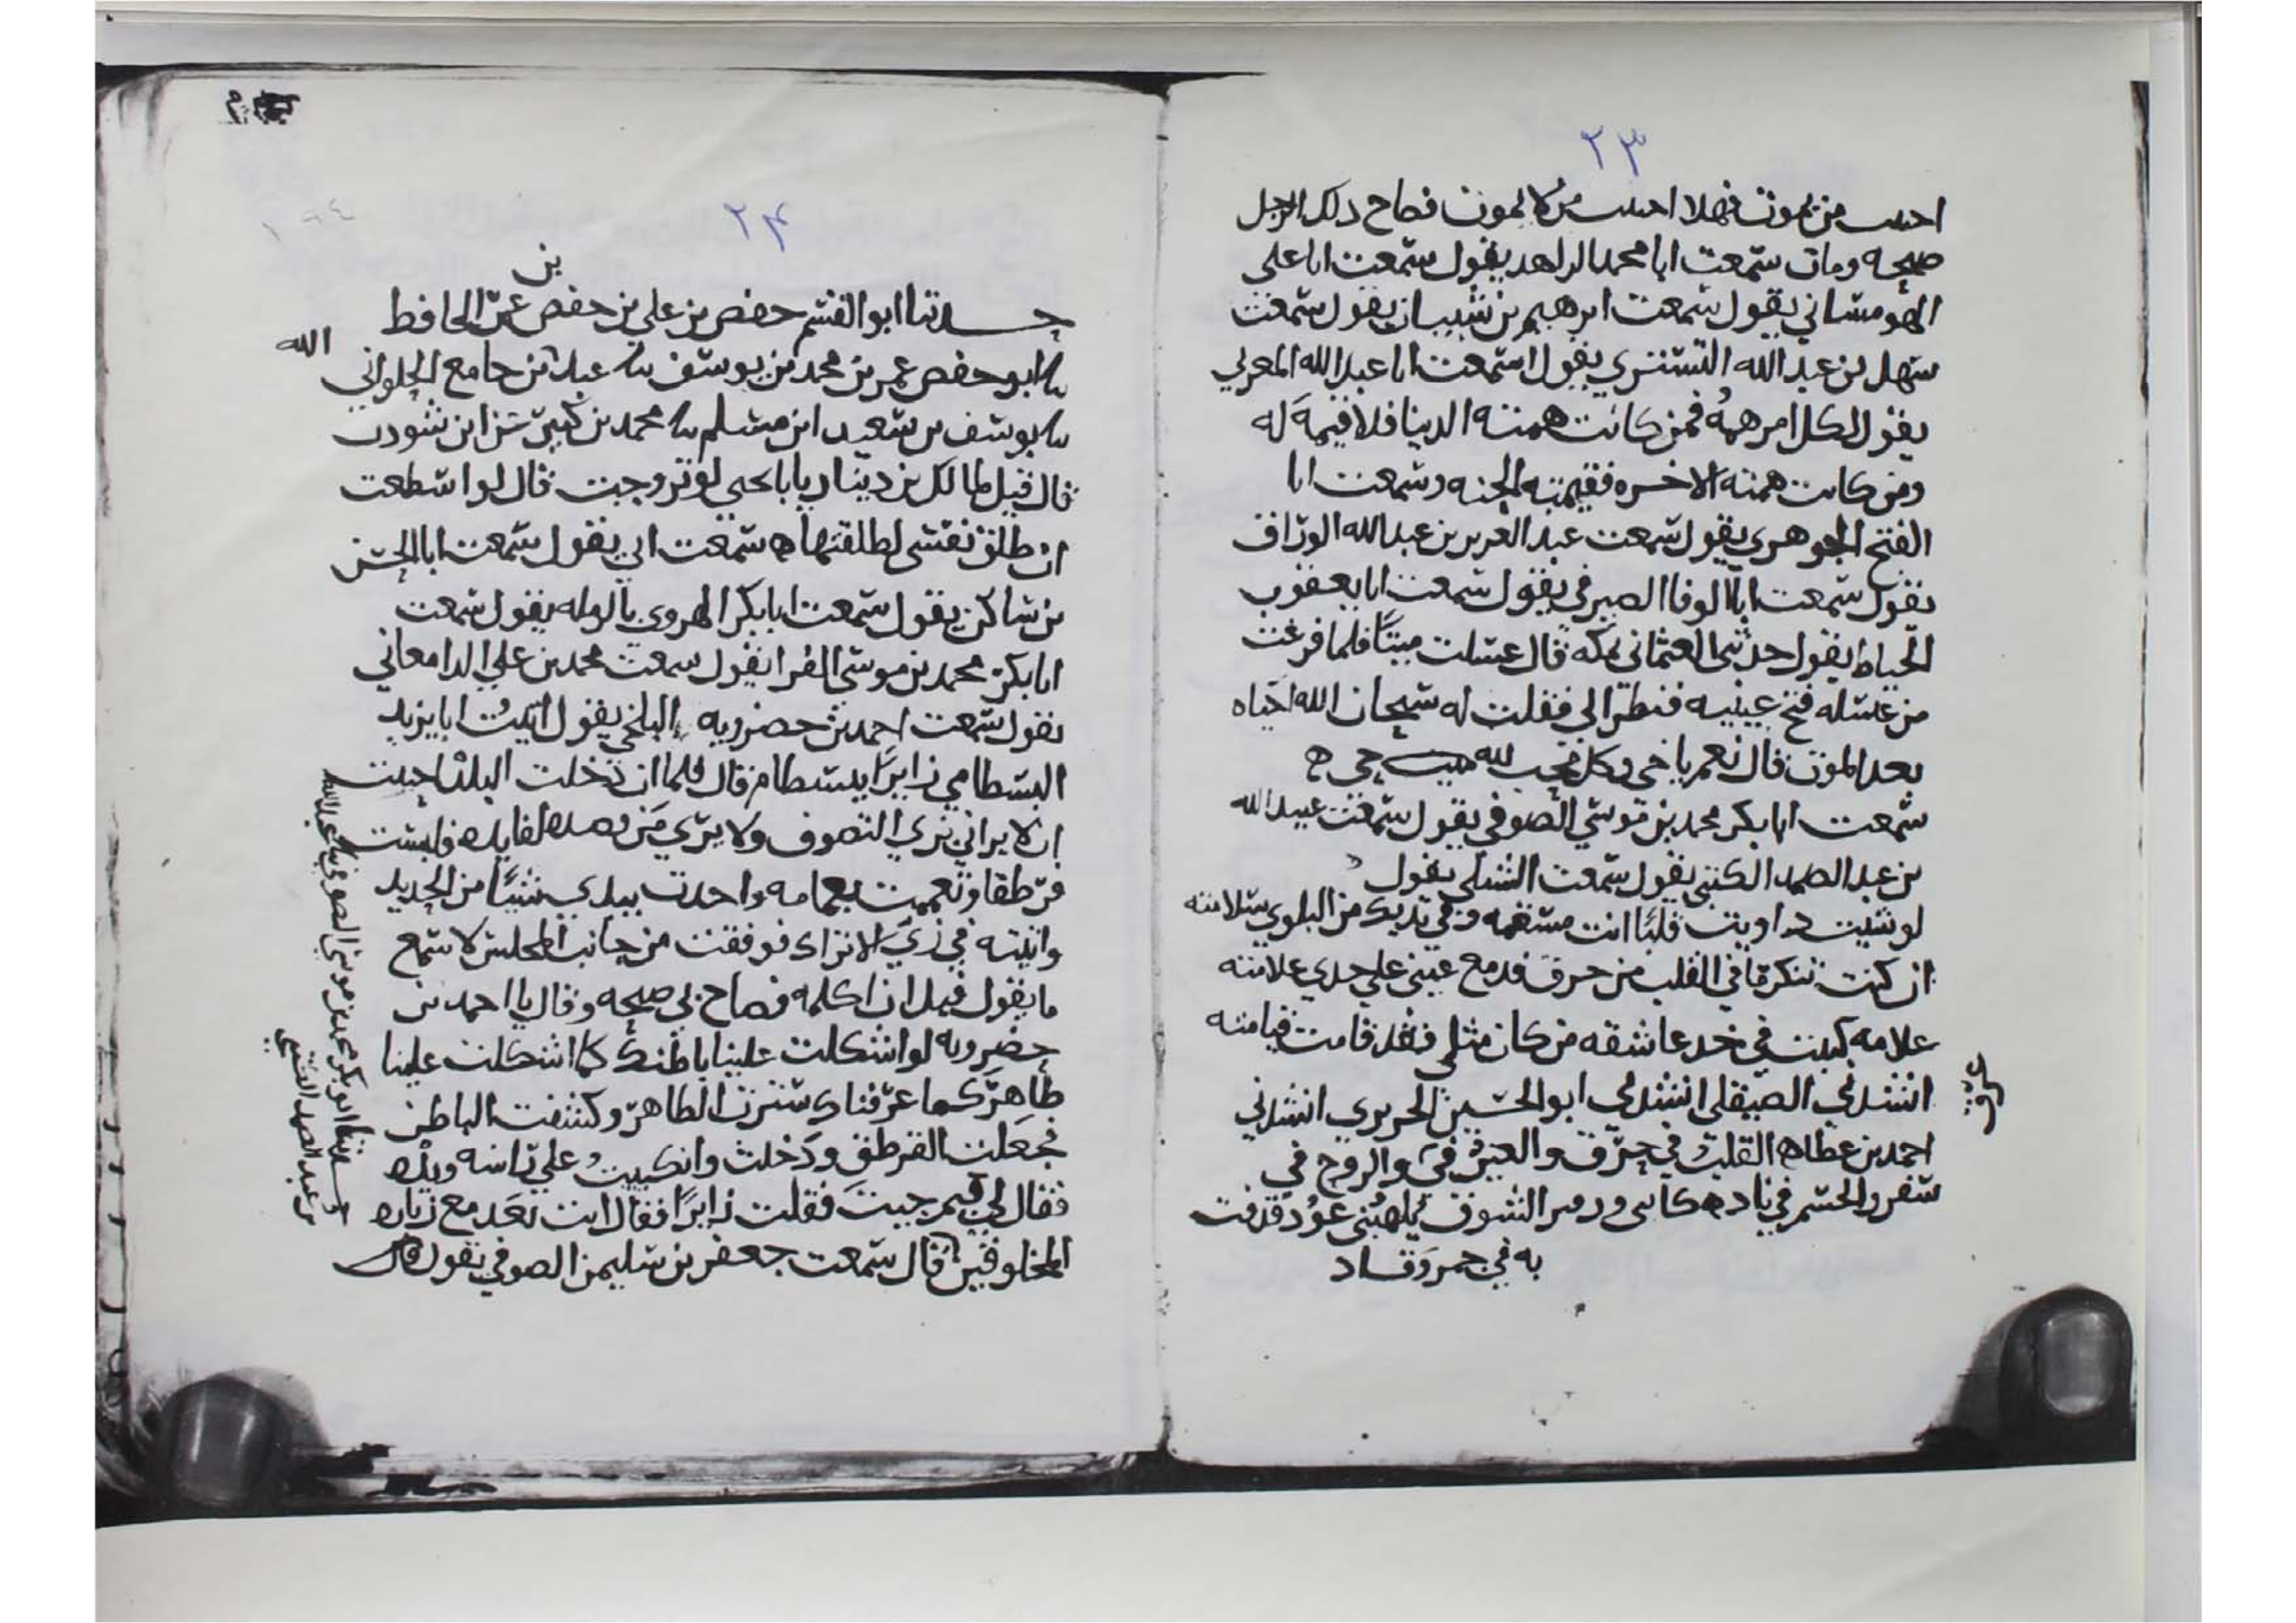 ٢٣
احببت من يموت فهلا احببت من لا يموت فصاح ذلك الرجل
صيحه ومات سمعت ابا محمد الزاهد يقول سمعت ابا على
يقول سمعت ابرهيم بن شيبان يقول سمعت
سهل بن عبد الله التستري يقول سمعت ابا عبد الله المغربي
يقول لكل امر همه فمن كانت همته الدنيا فلا قيمة له
ومن كانت همته الاخره فقيمته الجنه وسمعت ابا
الفتح الجوهري يقول سمعت عبد العزيز بن عبد الله الوراق
يقول سمعت ابا الوفا الصيرفي يقول سمعت ابا يعقوب
الخياط يقول حدثني العثماني بمكه قال غسلت ميتًا فلما فرغت
من غسله فتح عينيه فنظر الي فقلت له سبحان الله احياه
بعد الموت قال نعم ياخي وكل محب لله حي ه
سمعت ابا بكر محمد بن موسي الصوفي يقول سمعت عبيد الله
بن عبد الصمد يقول سمعت الشبلي يقول
لو شيت داويت قلبًا انت مسقمه وفي يديك من البلوي سلامته
ان كنت تنكر ما في القلب من حرق فدمع عيني علي خدي علامته
علامه كتبت في خد عاشقه من كان مثلي فقد قامت قيامته
انشدني الصيقلي انشدني ابو الحسين الحريري انشدني
احمد بن عطا ه القلب في حرق والعين في والروح في
سفر والجسم في ناد ه كاني الشوق يلهبني عود قذفت
به في جمر وقاد
حرق
٢٤
بن
حدثنا ابو القسم حفص بن علي بن حفص عمر الحافظ
ثنا ابو حفص عمر بن محمد بن يوسف ثنا عبد بن جامع الحلواني
الله
ثنا يوسف بن سعيد ابن مسلم ثنا محمد بن كثير عن ابن شوذب
قال قيل لمالك بن دينار يابا يحيي لو تزوجت قال لو اسطعت
ان اطلق نفسي لطلقتها ه سمعت ابي يقول سمعت ابا الحسن
بن شاكر يقول سمعت ابا بكر الهروي بالرمله يقول سمعت
ابا بكر محمد بن موسي الفرا يقول سمعت محمد بن علي الدامغاني
يقول سمعت احمد بن حضرويه البلخي يقول اتيت ابا يزيد
البسطامي زايرًا ببسطام قال فلما ان دخلت البلد احببت
ان لا يراني بزي التصوف ولا يري من فلبست
قرطقا وتعممت بعمامه واخذت بيدي شيًا من الحديد
واتيته في زي الاتراك فوقفت من جانب المجلس لاسمع
ما يقول قبل ان اكلمه فصاح بي صيحه وقال يا احمد بن
حضرويه لو اشكلت علينا باطنك كما اشكلت علينا
ظاهرك ما عرفناك سترت الظاهر وكشفت الباطن
فجعلت القرطق ودخلت وانكببت علي راسه ويده
فقال لي فيم جيت فقلت زايرًا فقال انت بعد مع زياره
المخلوقين قال سمعت جعفر بن سليمن الصوفي يقول قال
حدثنا ابو بكر محمد بن موسي الصوفي ثنا عبيد الله
بن عبد الصمد